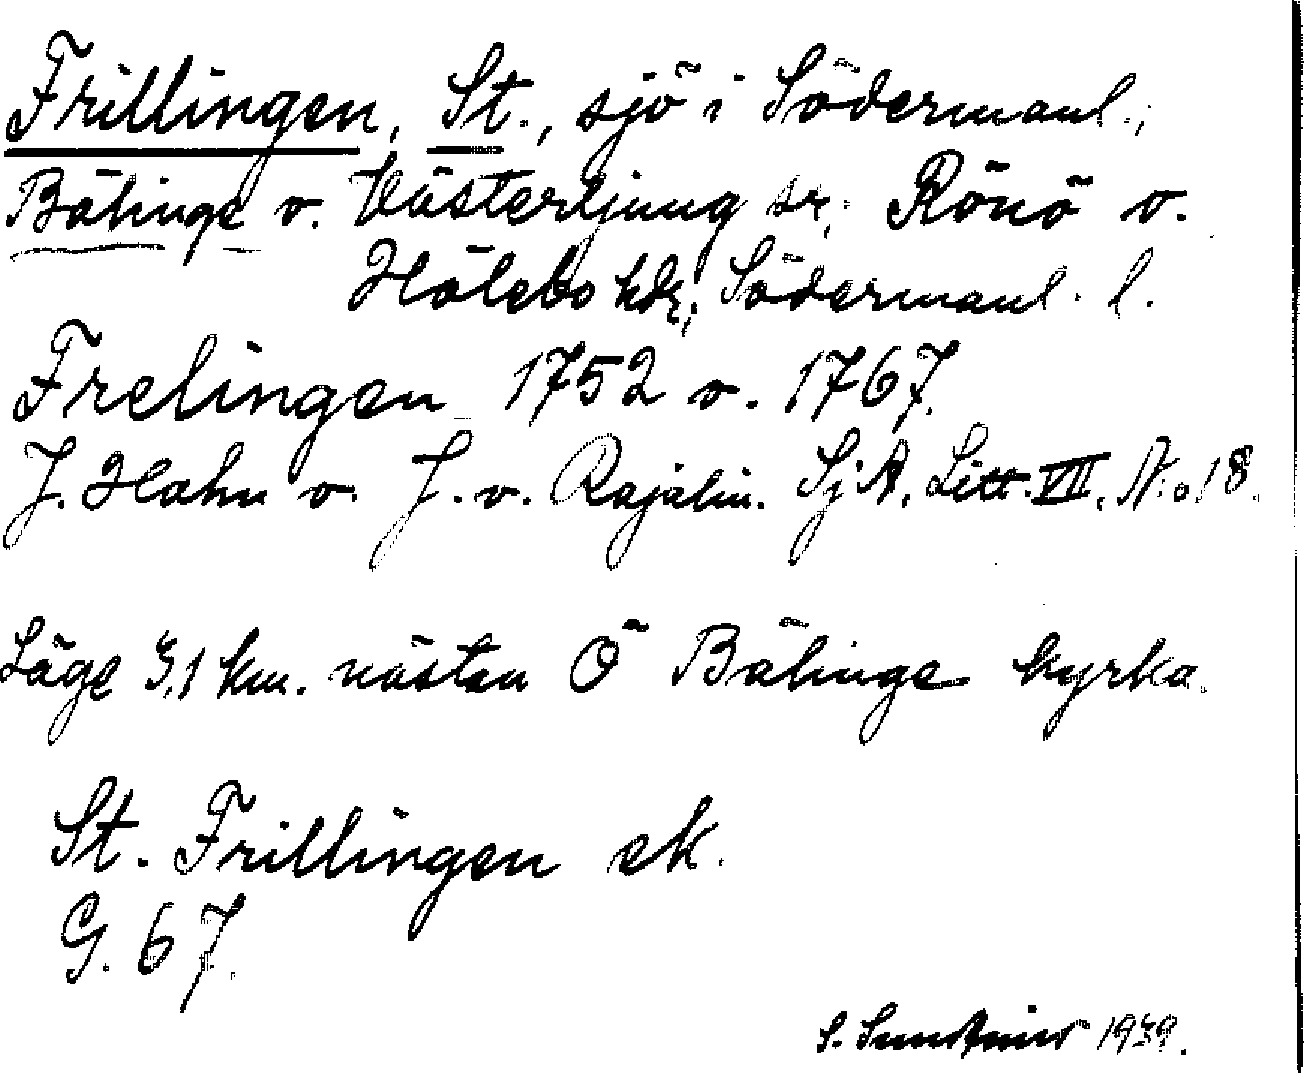 Frillingen, St., sjö i Södermanl.;
Bälinge o. Västerljung sr; Rönö o.
Hölebo hdr; Södermanl. l.
Frelingen 1752 o. 1767.
J. Hahn o. J. v. Rajalin. SjA. Litt. VII. N:o 18.
Läge 3,1 km. nästan Ö Bälinge kyrka.
St. Frillingen ek.
G. 67.
S. 1939.